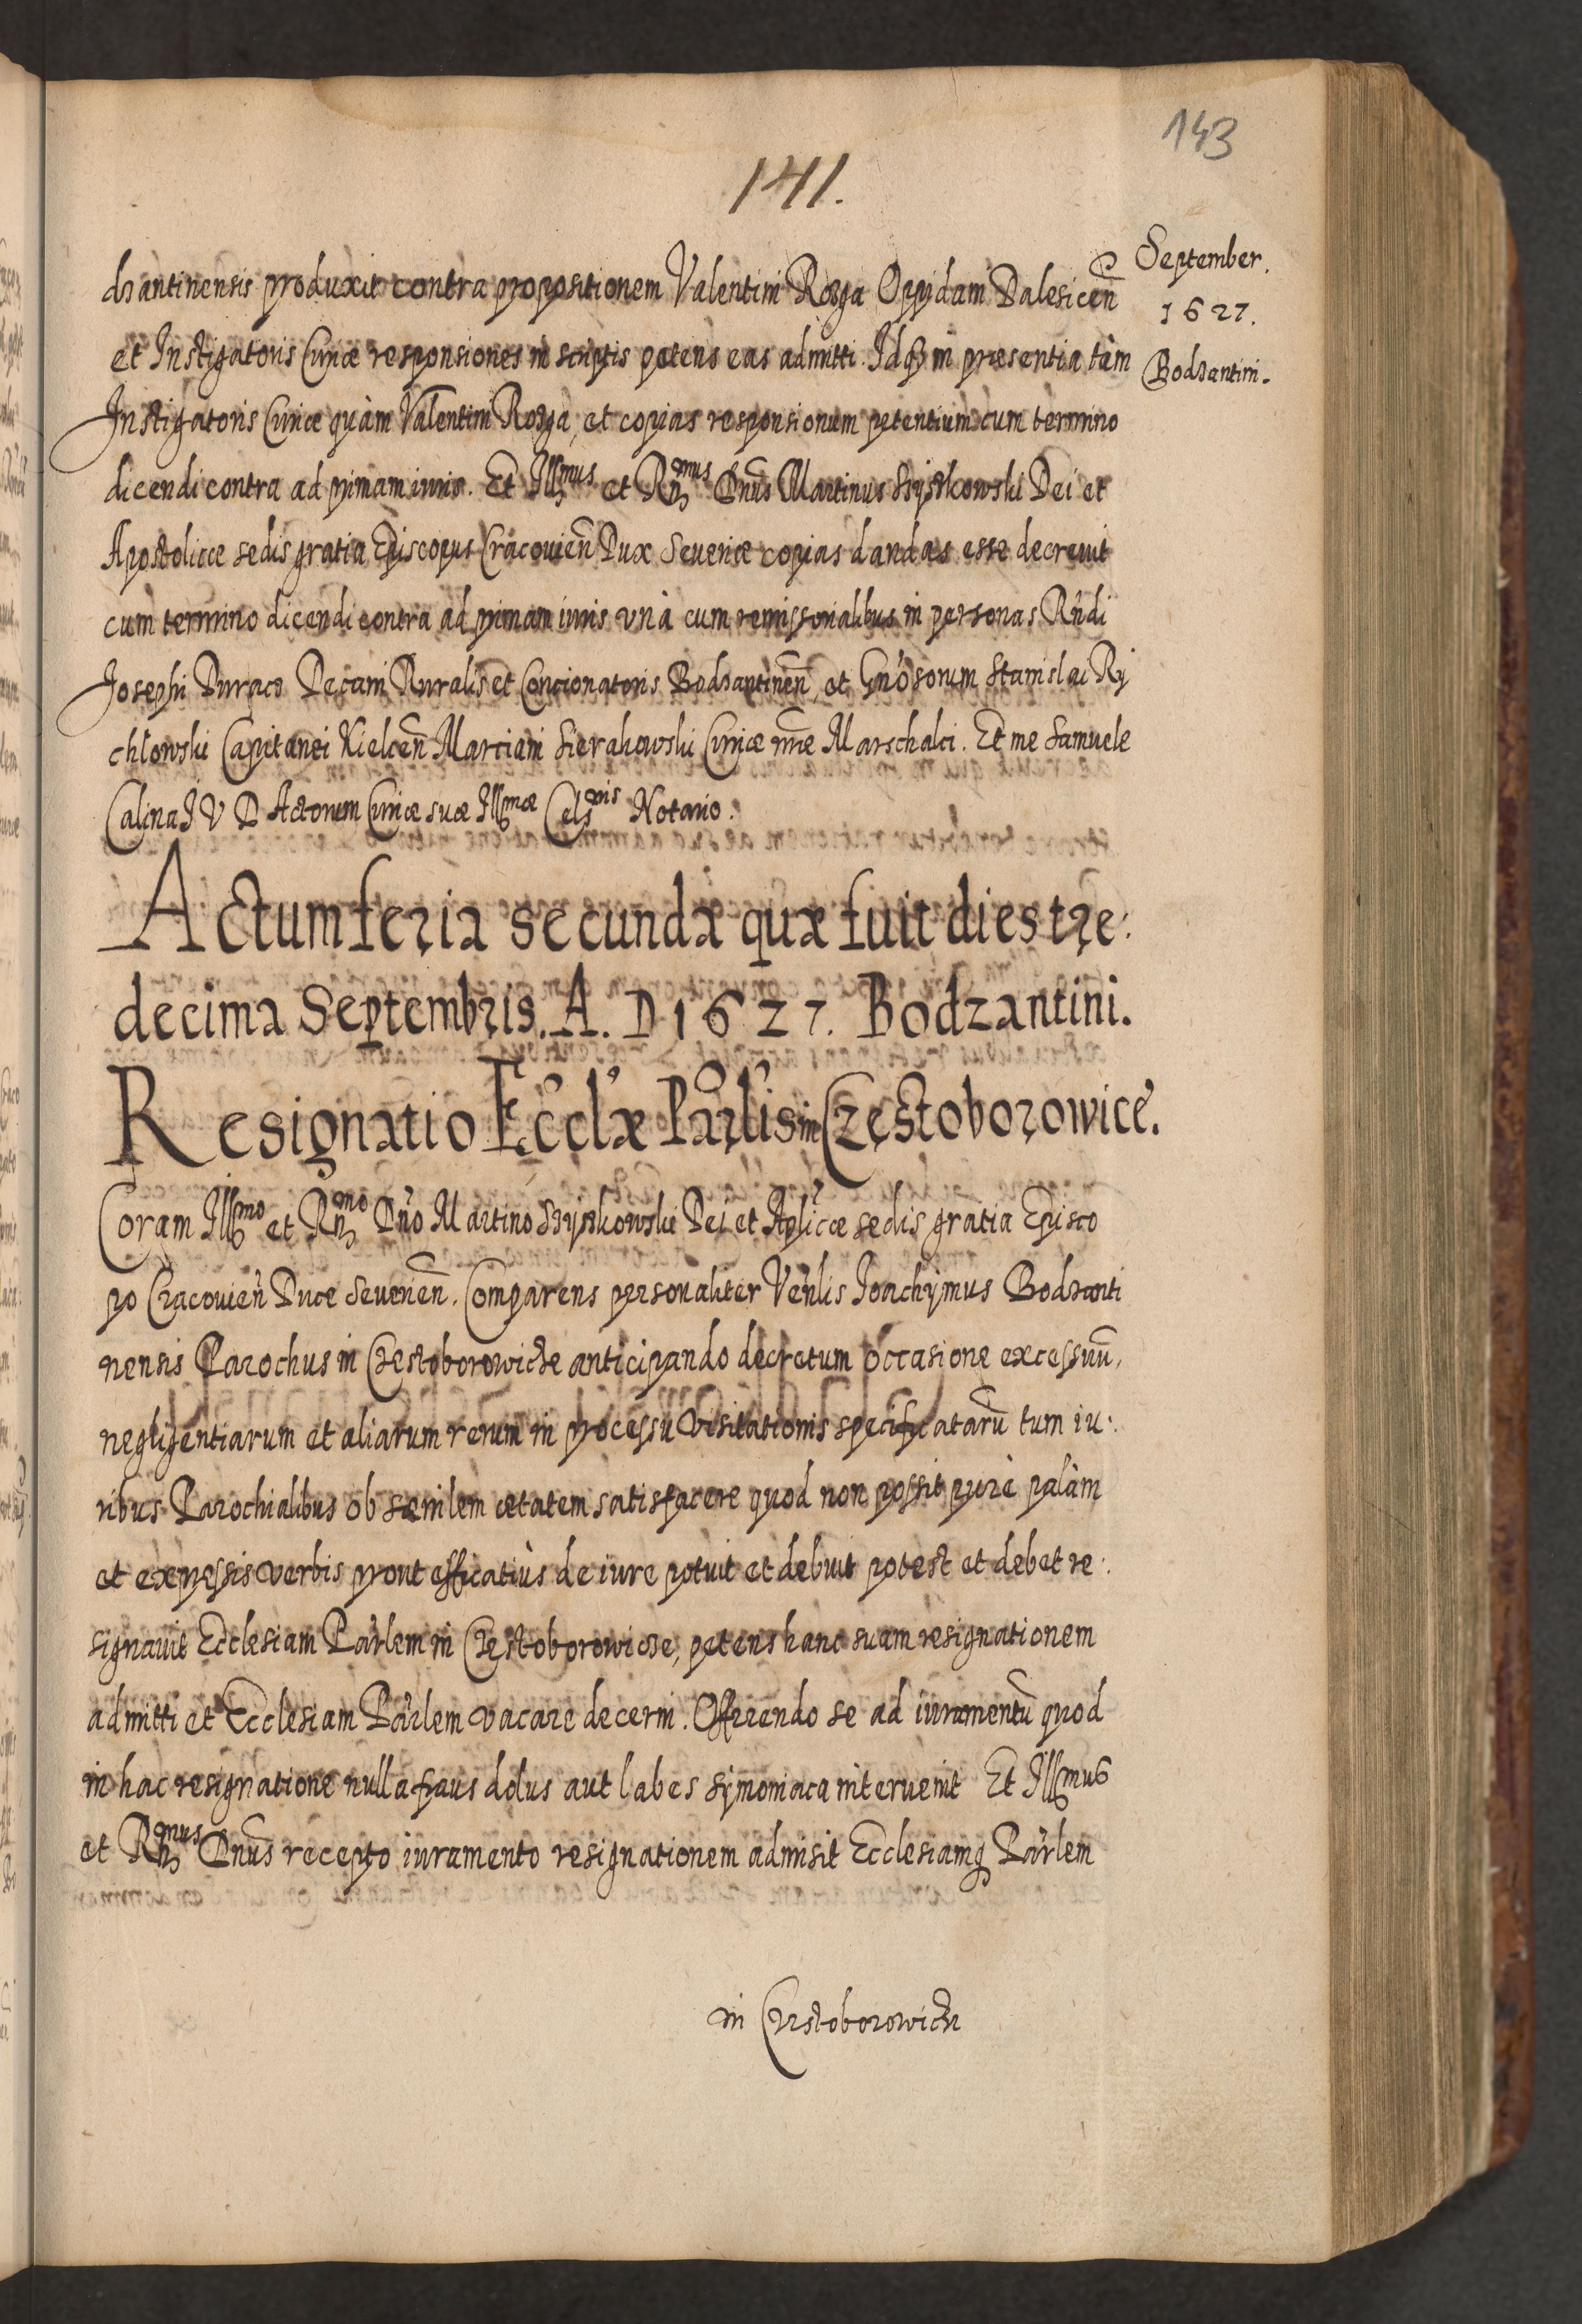 143
141.
September.
1627.
Bodzantini.
dzantinensis produxit contra propositionem Valentini Rozga Oppidani Dalesicen̄
et Instigatoris Curiæ responsiones in scriptis petens eas admitti. Idq̃ in præsentia tàm
Instigatoris Curiæ quàm Valentini Rozga, et copias responsionum petentium cum termino
dicendi contra ad primam iuris. Et Illmus et Rn̄mus Dn̄us Martinus Szyszkowski Dei et
Apostolicæ sedis gratia Episcopus Cracouien̄ Dux Seueriæ copias dandas esse decreuit
cum termino dicendi contra ad primam iuris vnà cum remissorialibus in personas Rn̄di
Josephi Duracz Decani Ruralis et Concionatoris Bodzantinen̄, et Gn̄osorum Stanislai Ry
chłowski Capitanei Kielcen̄ Marciani Sierakowski Curiæ n̄ræ Marschalci. Et me Samuele
Calina J V D Actorum Curiæ suæ Illmæ Celsnis Notario.
Actum feria secunda quæ fuit dies tre:
decima Septembris. A. D 1627. Bodzantini.
Resignatio Eccl'æ Par̄lis in Częstoborowice.
Coram Illmo et Rn̄mo Dn̄o Martino Szyszkowski Dei et Aplicæ sedis gratia Episco
po Cracouien̄ Duce Seuerien̄. Comparens personaliter Ven̄lis Joachymus Bodzanti
nensis Parochus in Czestoborowicze anticipando decretum occasione excessuū,
negligentiarum et aliarum rerum in processu visitationis specificatarū tum iu:
ribus Parochialibus ob senilem ætatem satisfacere quod non possit purè palàm
et expressis verbis prout efficatiùs de iure potuit et debuit potest et debet re:
signauit Ecclesiam Par̄lem in Czestoborowicze, petens hanc suam resignationem
admitti et Ecclesiam Par̄lem vacare decerni. Offerendo se ad iuramentū quod
in hac resignatione nulla fraus dolus aut labes symoniaca interuenit Et Illmus
et Rn̄mus Dn̄us recepto iuramento resignationem admisit Ecclesiamq̃ Par̄lem
in Czestoborowicze